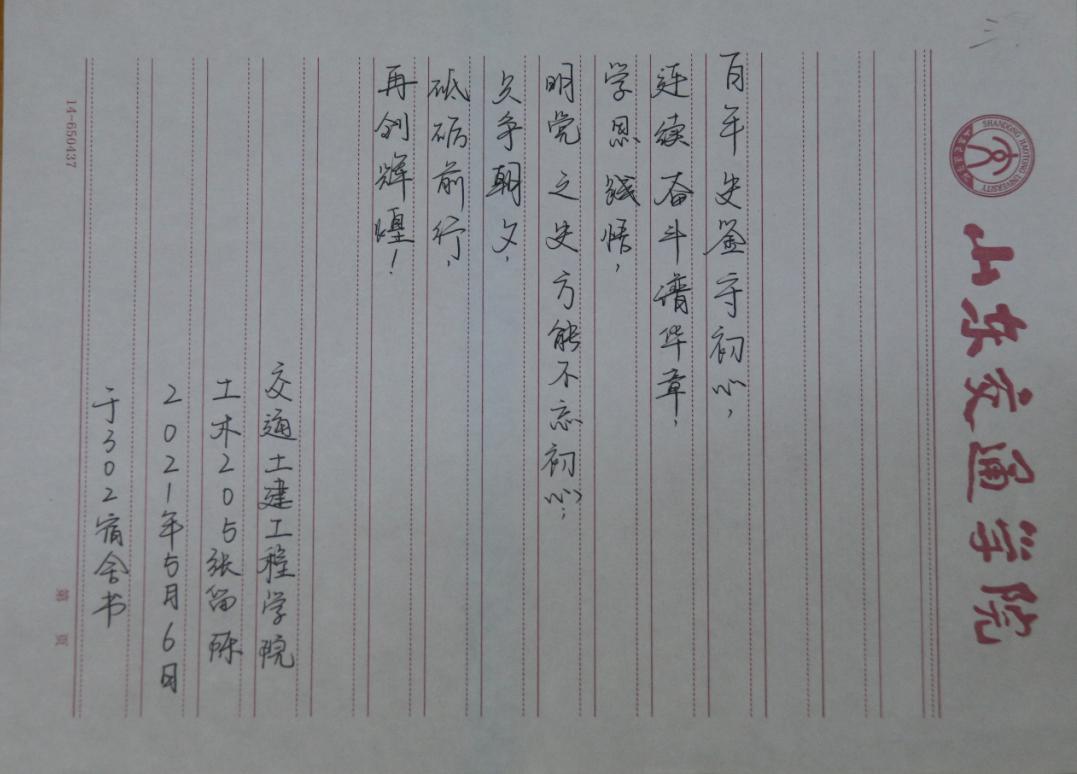 三
SHANDONG JIAOTONG UNIVERSITY
山东交通学院
百年史鉴守初心,
连续奋斗谱华章,
学思践悟,
明党之史方能不忘初心,
只争朝夕,
砥砺前行,
再创辉煌!
交通土建工程学院
土木205张留际
2021年5月6日
于302宿舍书
第 页
14-650437